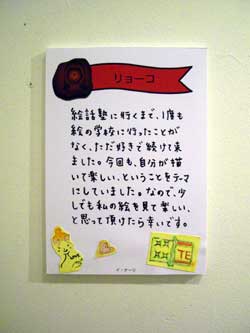 リョーコ
絵話塾に行くまで、1度も
絵の学校に行ったことが
なく、ただ好きで続けて来
ました。今回も、自分が描
いて楽しい、ということをテーマ
にしていました。なので、少
しでも私の絵を見て楽しい、
と思って頂けたら幸いです。
TE